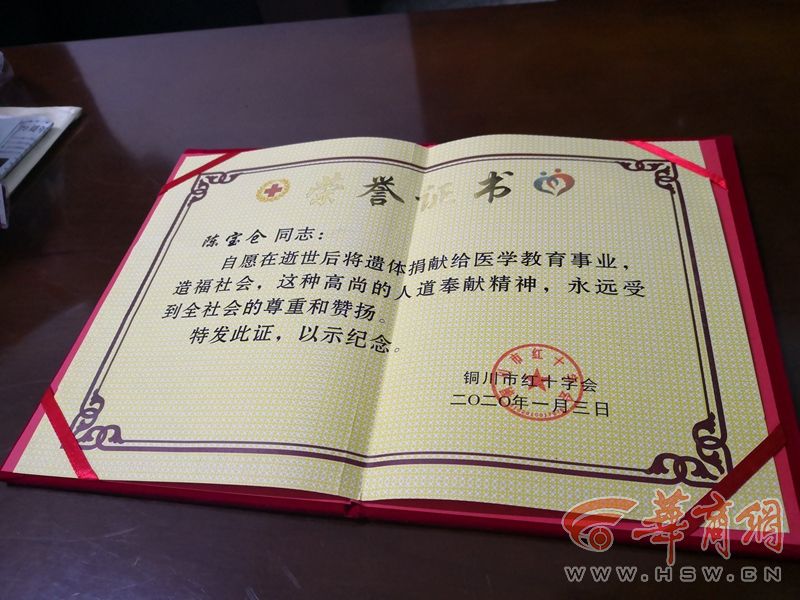 荣誉证书
陈宝仓 同志：
自愿在逝世后将遗体捐献给医学教育事业，
造福社会，这种高尚的人道奉献精神，永远受
到全社会的尊重和赞扬。
特发此证，以示纪念。
铜川市红十字会
二〇二〇年一月三日
铜川市红十字会
華商網
WWW.HSW.CN